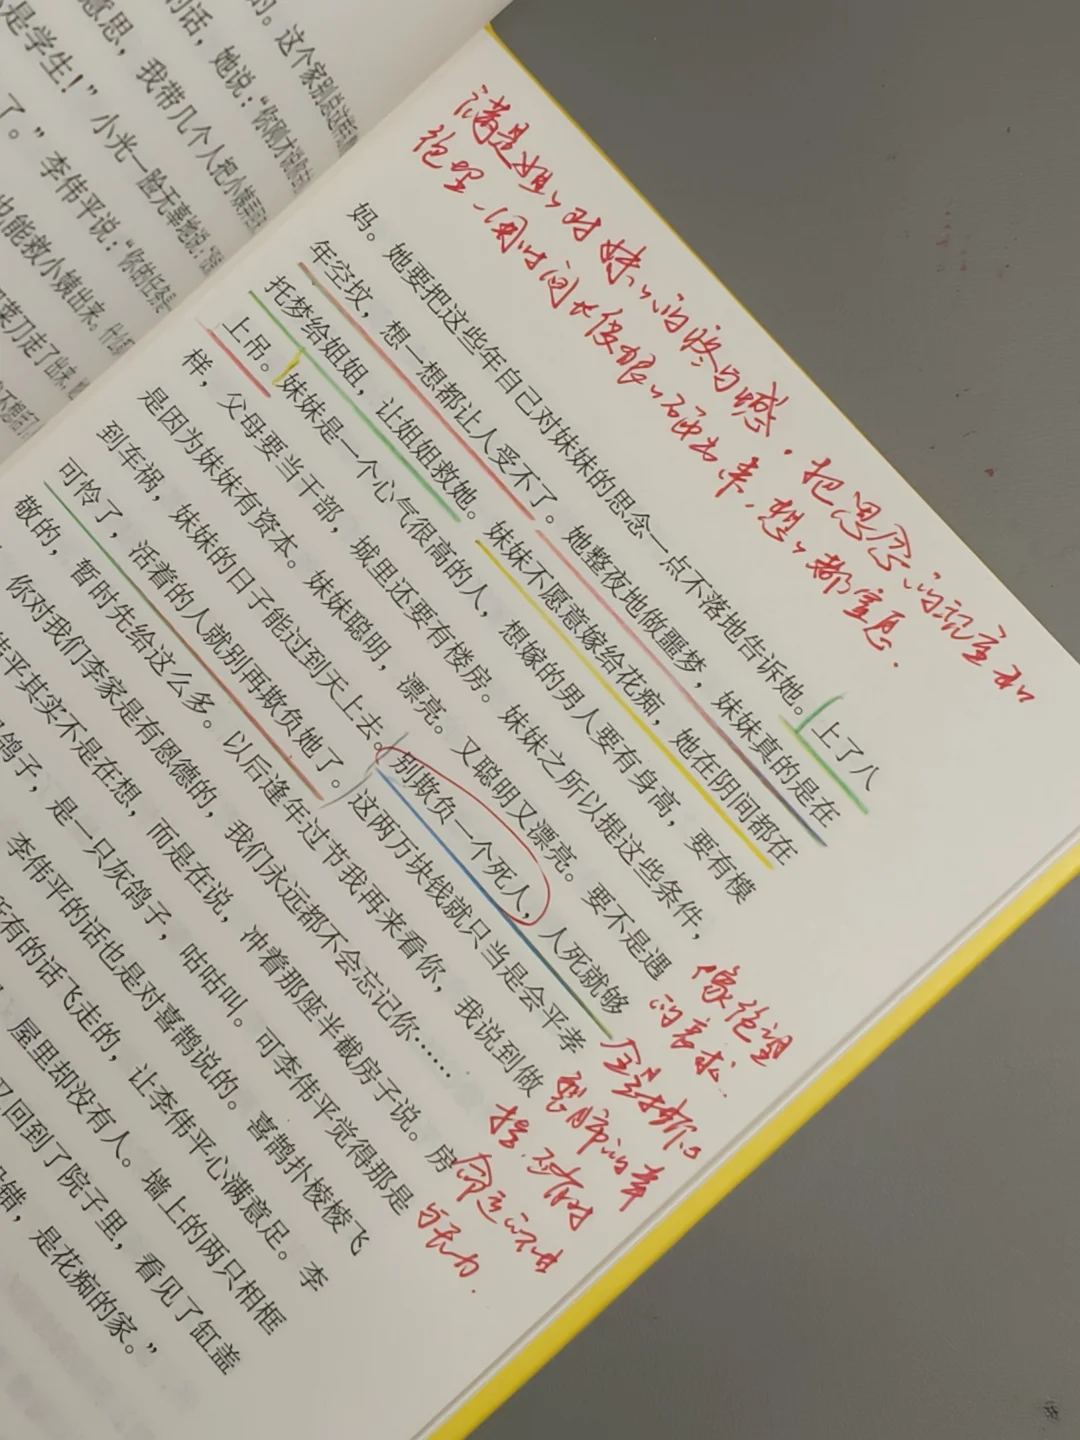 的。这个家别总这样
的话，她说：“你刚才说你
意思，我带几个人把小姨
是学生！”小光一脸无辜地说：
了。”李伟平说：“你的任务
也能救小姨出来。什么
菜刀走了出来，她
妈。她要把这些年自己对妹妹的思念一点不落地告诉她。上了八
年空坟，想一想都让人受不了。她整夜地做噩梦，妹妹真的是在
托梦给姐姐，让姐姐救她。妹妹不愿意嫁给花痴，她在阴间都在
上吊。妹妹是一个心气很高的人，想嫁的男人要有身高，要有模
样，父母要当干部，城里还要有楼房。妹妹之所以提这些条件，
是因为妹妹有资本。妹妹聪明，漂亮。又聪明又漂亮。要不是遇
到车祸，妹妹的日子能过到天上去。别欺负一个死人，人死就够
可怜了，活着的人就别再欺负她了。这两万块钱就只当是会平孝
敬的，暂时先给这么多。以后逢年过节我再来看你，我说到做
你对我们李家是有恩德的，我们永远都不会忘记你……
伟平其实不是在想，而是在说，冲着那座半截房子说。房
鸽子，是一只灰鸽子，咕咕叫。可李伟平觉得那是
李伟平的话也是对喜鹊说的。喜鹊扑棱棱飞
所有的话飞走的，让李伟平心满意足。李
屋里却没有人。墙上的两只相框
又回到了院子里，看见了缸盖
没错，是花痴的家。”
满是姐姐对妹妹的疼与憾，把思念的视
都窒息.
像绝望
的哀求.
全是撕心
裂肺的
命运的不甘
与无力.